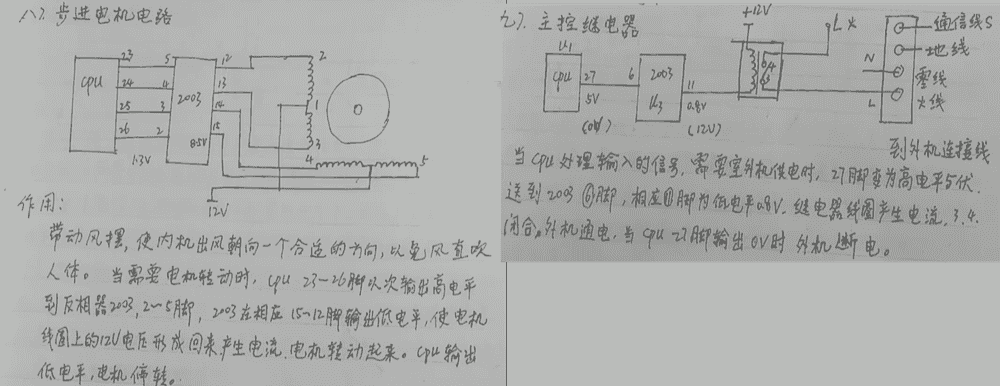 八). 步进电机电路
CPU
23
24
25
26
5
4
3
2
2003
12
13
14
15
1.3V
0.5V
12V
2
1
3
4
5
作用:
带动风摆, 使内机出风朝向一个合适的方向, 以免风直吹
人体。 当需要电机转动时, CPU 23-26脚以次输出高电平
到反相器2003, 2~5脚, 2003在相应 15~12脚输出低电平, 使电机
线圈上的12V电压形成回来产生电流, 电机转动起来。CPU输出
低电平, 电机停转。
九). 主控继电器
+12V
U1
CPU
27
5V
(0V)
6
2003
U3
11
0.8V
(12V)
L火
N
L
通信线S
地线
零线
火线
到外机连接线
当CPU处理输入的信号, 需要室外机供电时, 27脚变为高电平5伏.
送到2003 ⑥脚, 相应⑪脚为低电平0.8V. 继电器线圈产生电流, 3.4.
闭合。外机通电, 当CPU 27脚输出0V时 外机断电。